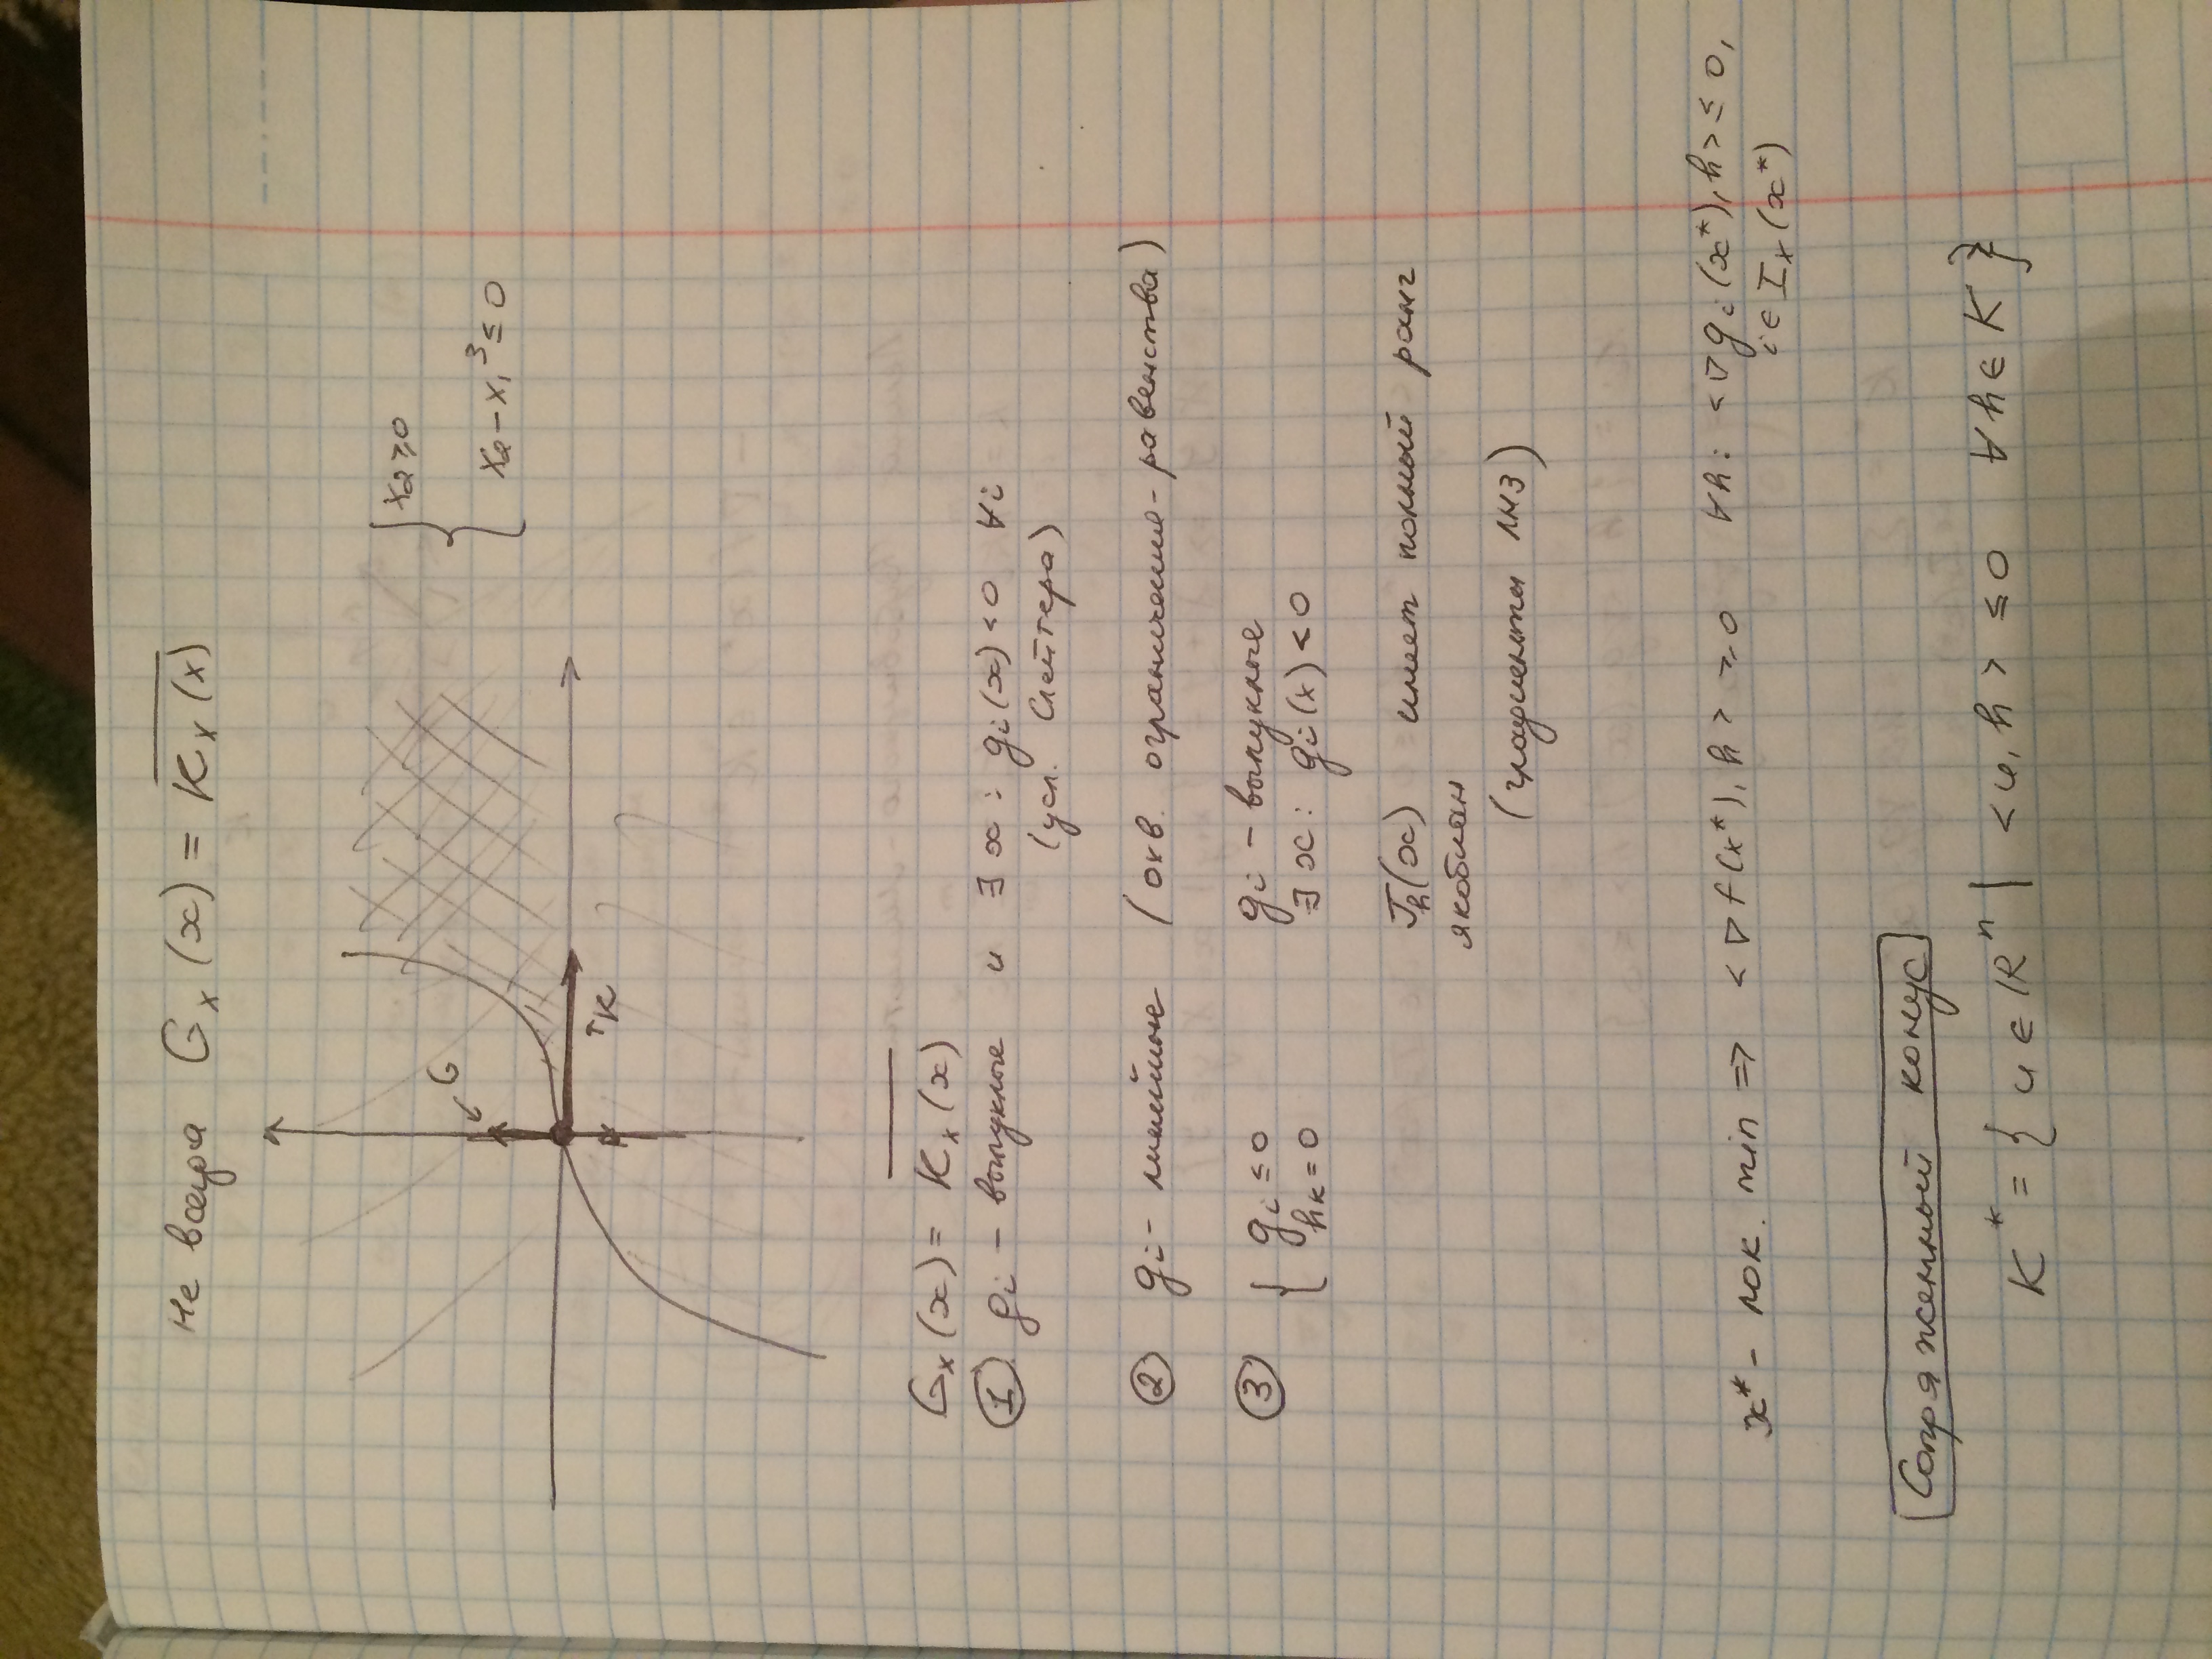 Не всегда G_x(x) = \overline{K_x(x)}
{ x₂ ≥ 0
x₂ − x₁³ ≤ 0
G
K
G_x(x) = \overline{K_x(x)}
① g_i – выпуклые и ∃ x : g_i(x) < 0 ∀i
(усл. Слейтера)
② g_i – линейные (экв. ограничение-равенства)
③ { g_i ≤ 0 g_i – выпуклые
h_k = 0 ∃ x : g_i(x) < 0
J_h(x) имеет полный ранг
якобиан
(градиенты ЛНЗ)
x* – лок. min ⇒ <∇f(x*), h> ≥ 0 ∀h : <∇g_i(x*), h> ≤ 0,
i ∈ I_x(x*)
Сопряженный конус
K* = { u ∈ ℝⁿ | <u, h> ≤ 0 ∀h ∈ K }